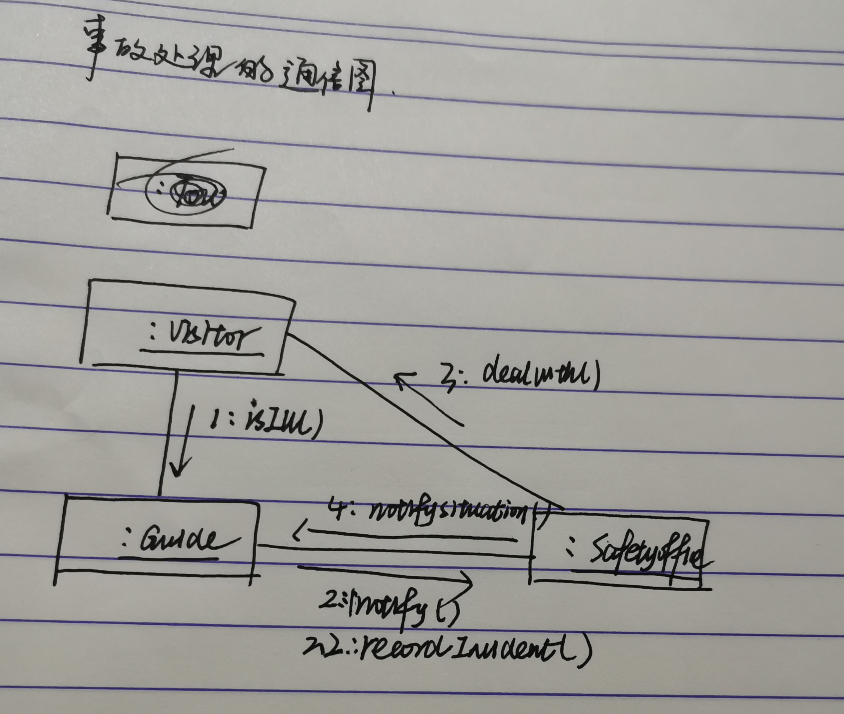 事故处理的通信图.
:Visitor
3: dealwith()
1: isIll()
4: notifysituation()
:Guide
:Safetyoffice
2:notify()
2.2:recordIncident()